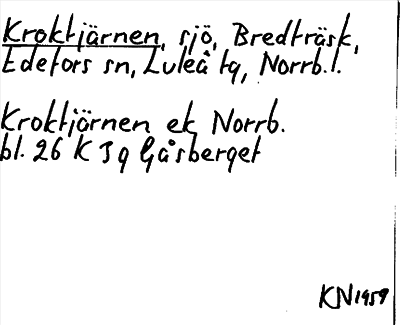 Kroktjärnen, sjö, Bredträsk,
Edefors sn, Luleå tg, Norrb.l.
Kroktjärnen ek Norrb.
bl. 26 K 3 g Gåsberget
KN 1959